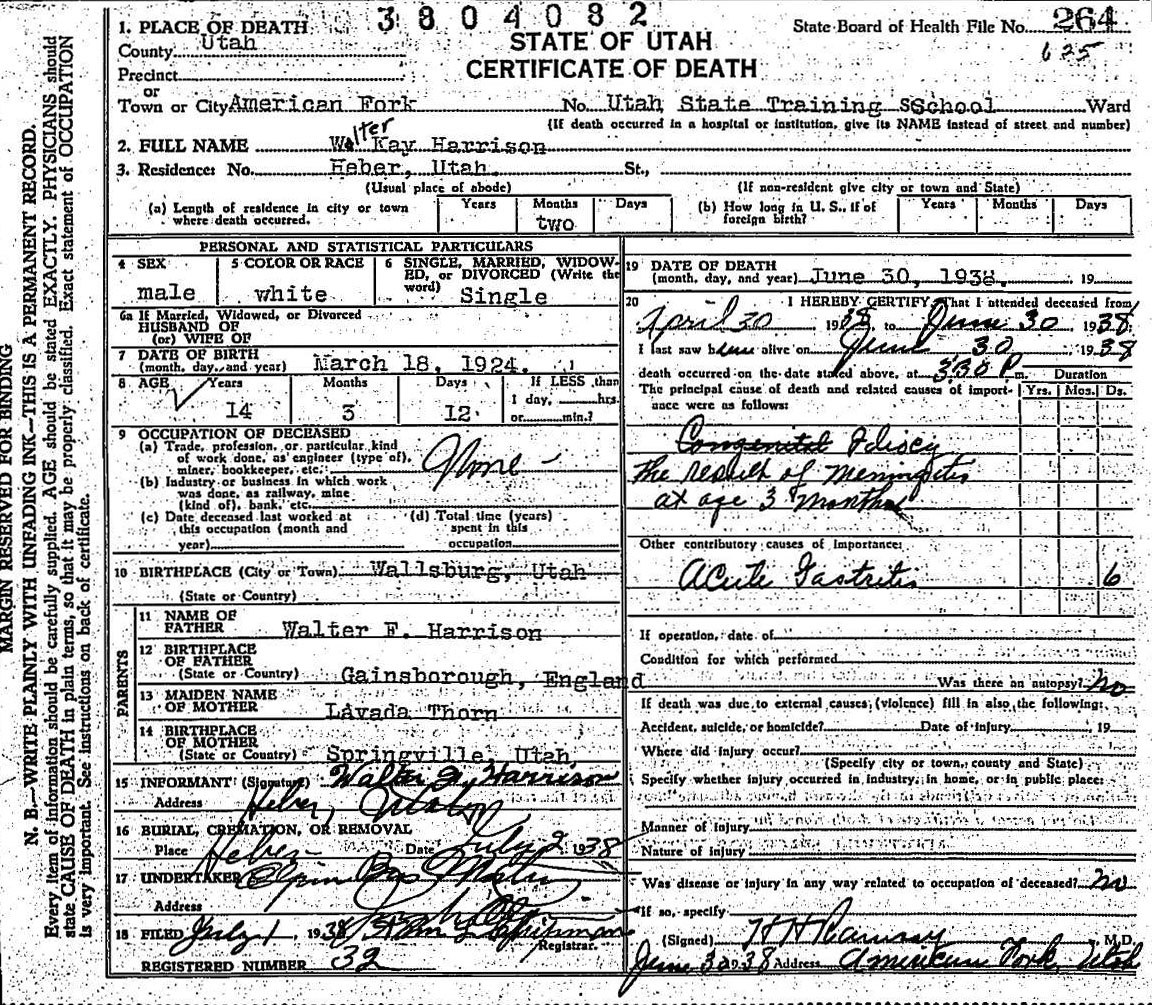 3804082
1. PLACE OF DEATH
State Board of Health File No. 264
625
County Utah
STATE OF UTAH
CERTIFICATE OF DEATH
Precinct
or
Town or City American Fork No. Utah State Training SSchool Ward
(If death occurred in a hospital or institution, give its NAME instead of street and number)
2. FULL NAME Walter Kay Harrison
3. Residence: No. Heber, Utah. St.,
(Usual place of abode) (If non-resident give city or town and State)
(a) Length of residence in city or town where death occurred. Years Months two Days
(b) How long in U. S., if of foreign birth? Years Months Days
PERSONAL AND STATISTICAL PARTICULARS
4 SEX male
5 COLOR OR RACE white
6 SINGLE, MARRIED, WIDOWED, or DIVORCED (Write the word) Single
6a If Married, Widowed, or Divorced
HUSBAND OF
(or) WIFE OF
7 DATE OF BIRTH
(month, day, and year) March 18, 1924.
8 AGE Years 14 Months 3 Days 12 If LESS than 1 day, hrs. or min.?
9 OCCUPATION OF DECEASED
(a) Trade, profession, or particular kind
of work done, as engineer (type of),
miner, bookkeeper, etc.: None
(b) Industry or business in which work
was done, as railway, mine
(kind of), bank, etc.
(c) Date deceased last worked at
this occupation (month and
year)
(d) Total time (years)
spent in this
occupation
10 BIRTHPLACE (City or Town) Wallsburg, Utah
(State or Country)
PARENTS
11 NAME OF
FATHER Walter F. Harrison
12 BIRTHPLACE
OF FATHER
(State or Country) Gainsborough, England
13 MAIDEN NAME
OF MOTHER Lavada Thorn
14 BIRTHPLACE
OF MOTHER
(State or Country) Springville, Utah
15 INFORMANT (Signature) Walter F. Harrison
Address Heber, Utah
16 BURIAL, CREMATION, OR REMOVAL
Place Heber Date July 2 1938
17 UNDERTAKER
Address
18 FILED July 1, 1938
Registrar.
REGISTERED NUMBER 32
19 DATE OF DEATH
(month, day, and year) June 30, 1938. 19
20 I HEREBY CERTIFY, That I attended deceased from
April 30 1938, to June 30 1938
I last saw h alive on June 30, 1938
death occurred on the date stated above, at 3:30 P m. Duration
The principal cause of death and related causes of importance were as follows: Yrs. Mos. Ds.
Congenital Idiocy
the result of Meningitis
at age 3 months
Other contributory causes of importance:
Acute Gastritis 6
If operation, date of
Condition for which performed
Was there an autopsy? no
If death was due to external causes (violence) fill in also the following:
Accident, suicide, or homicide? Date of injury 19
Where did injury occur?
(Specify city or town, county and State)
Specify whether injury occurred in industry, in home, or in public place:
Manner of injury
Nature of injury
Was disease or injury in any way related to occupation of deceased? no
If so, specify
(Signed) H H Ramsay M.D.
June 30 1938 Address American Fork, Utah
MARGIN RESERVED FOR BINDING
N. B.—WRITE PLAINLY WITH UNFADING INK—THIS IS A PERMANENT RECORD.
Every item of information should be carefully supplied. AGE should be stated EXACTLY. PHYSICIANS should
state CAUSE OF DEATH in plain terms, so that it may be properly classified. Exact statement of OCCUPATION
is very important. See instructions on back of certificate.